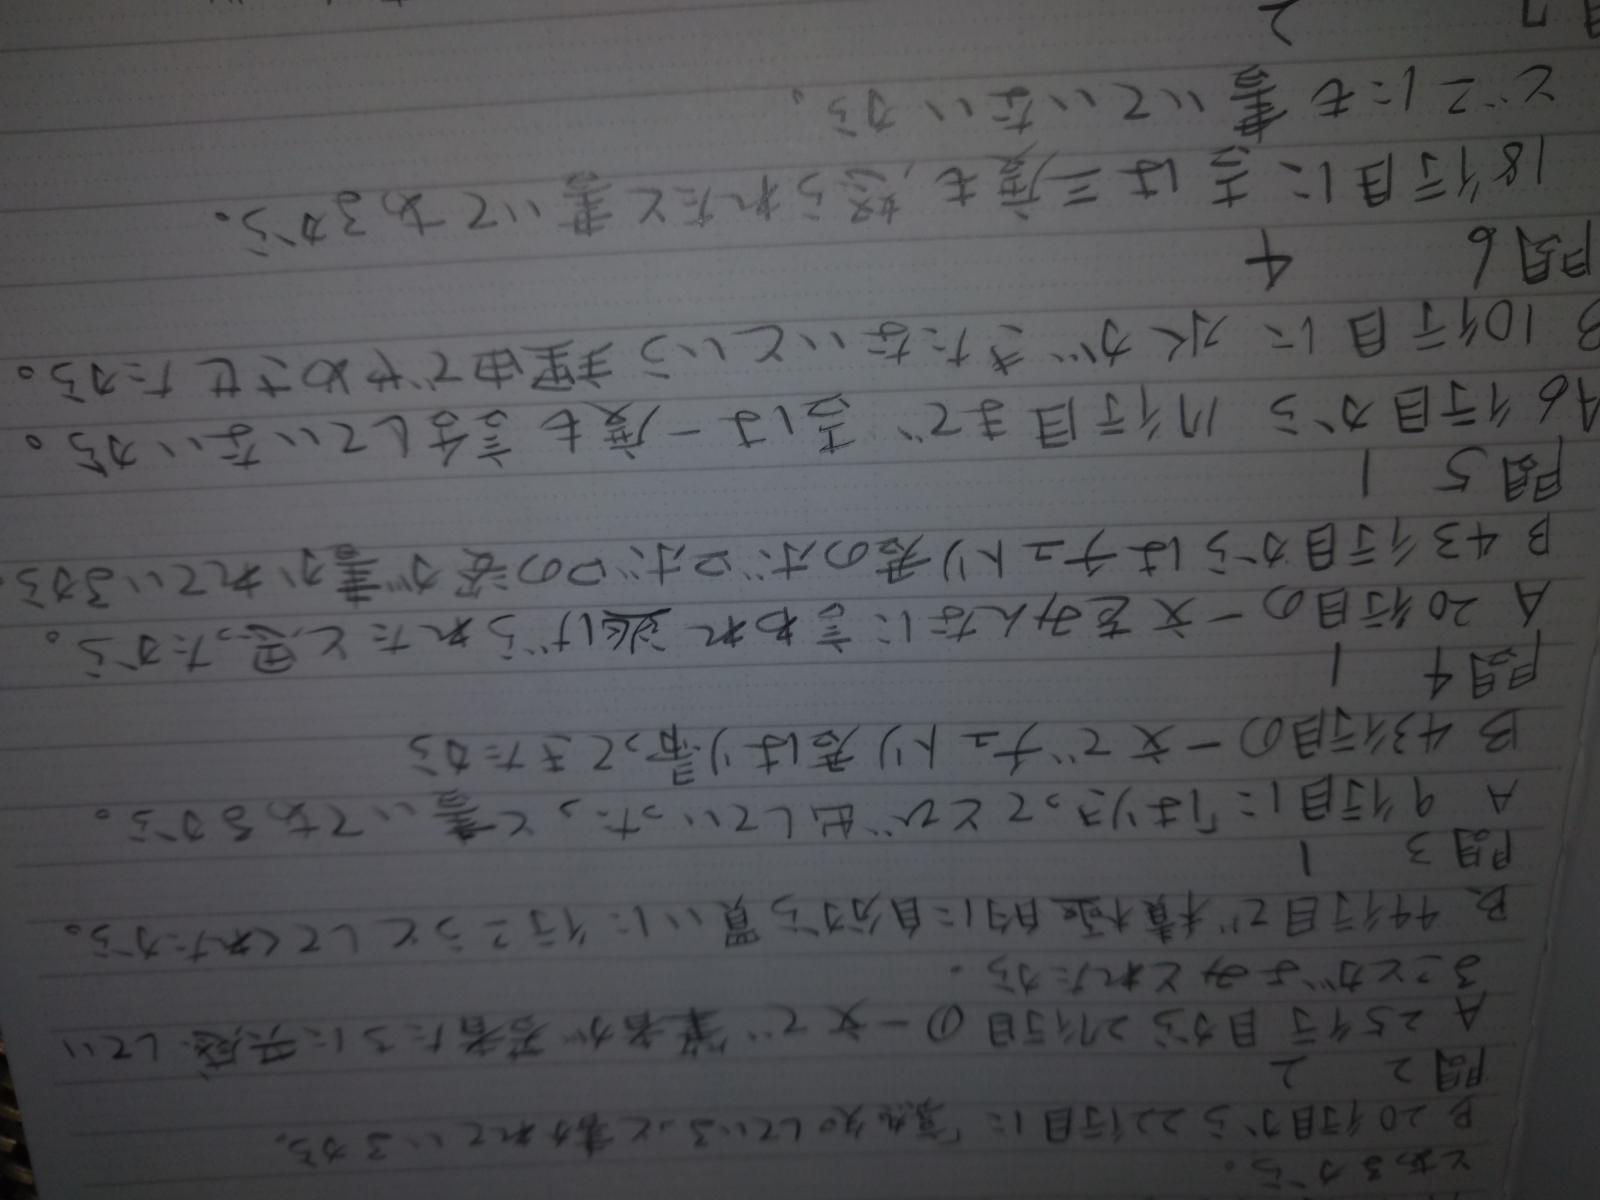 とあるから。
B 20行目から22行目に「熟知している」と書かれているから。
問2 2
A 25行目から27行目の一文で筆者が若者たちに共感してい
ることがよみとれたから。
B 44行目で積極的に自分から買いに行こうとしてくれたから。
問3 1
A 9行目に「はりきってとび出していった」と書いてあるから。
B 43行目の一文でチュトリ君はり帰ってきたから
問4 1
A 20行目の一文をみんなに言われ逃げられたと思ったから。
B 43行目からはチュトリ君のボロボロの姿が書かれているから.
問5 1
A 6行目から17行目まで 吉は一度も言及していないから。
B 10行目に水がきたないという理由でやめさせたから。
問6 4
18行目に吉は三度も怒られたと書いてあるから。
どこにも書いていないから。
問7 2